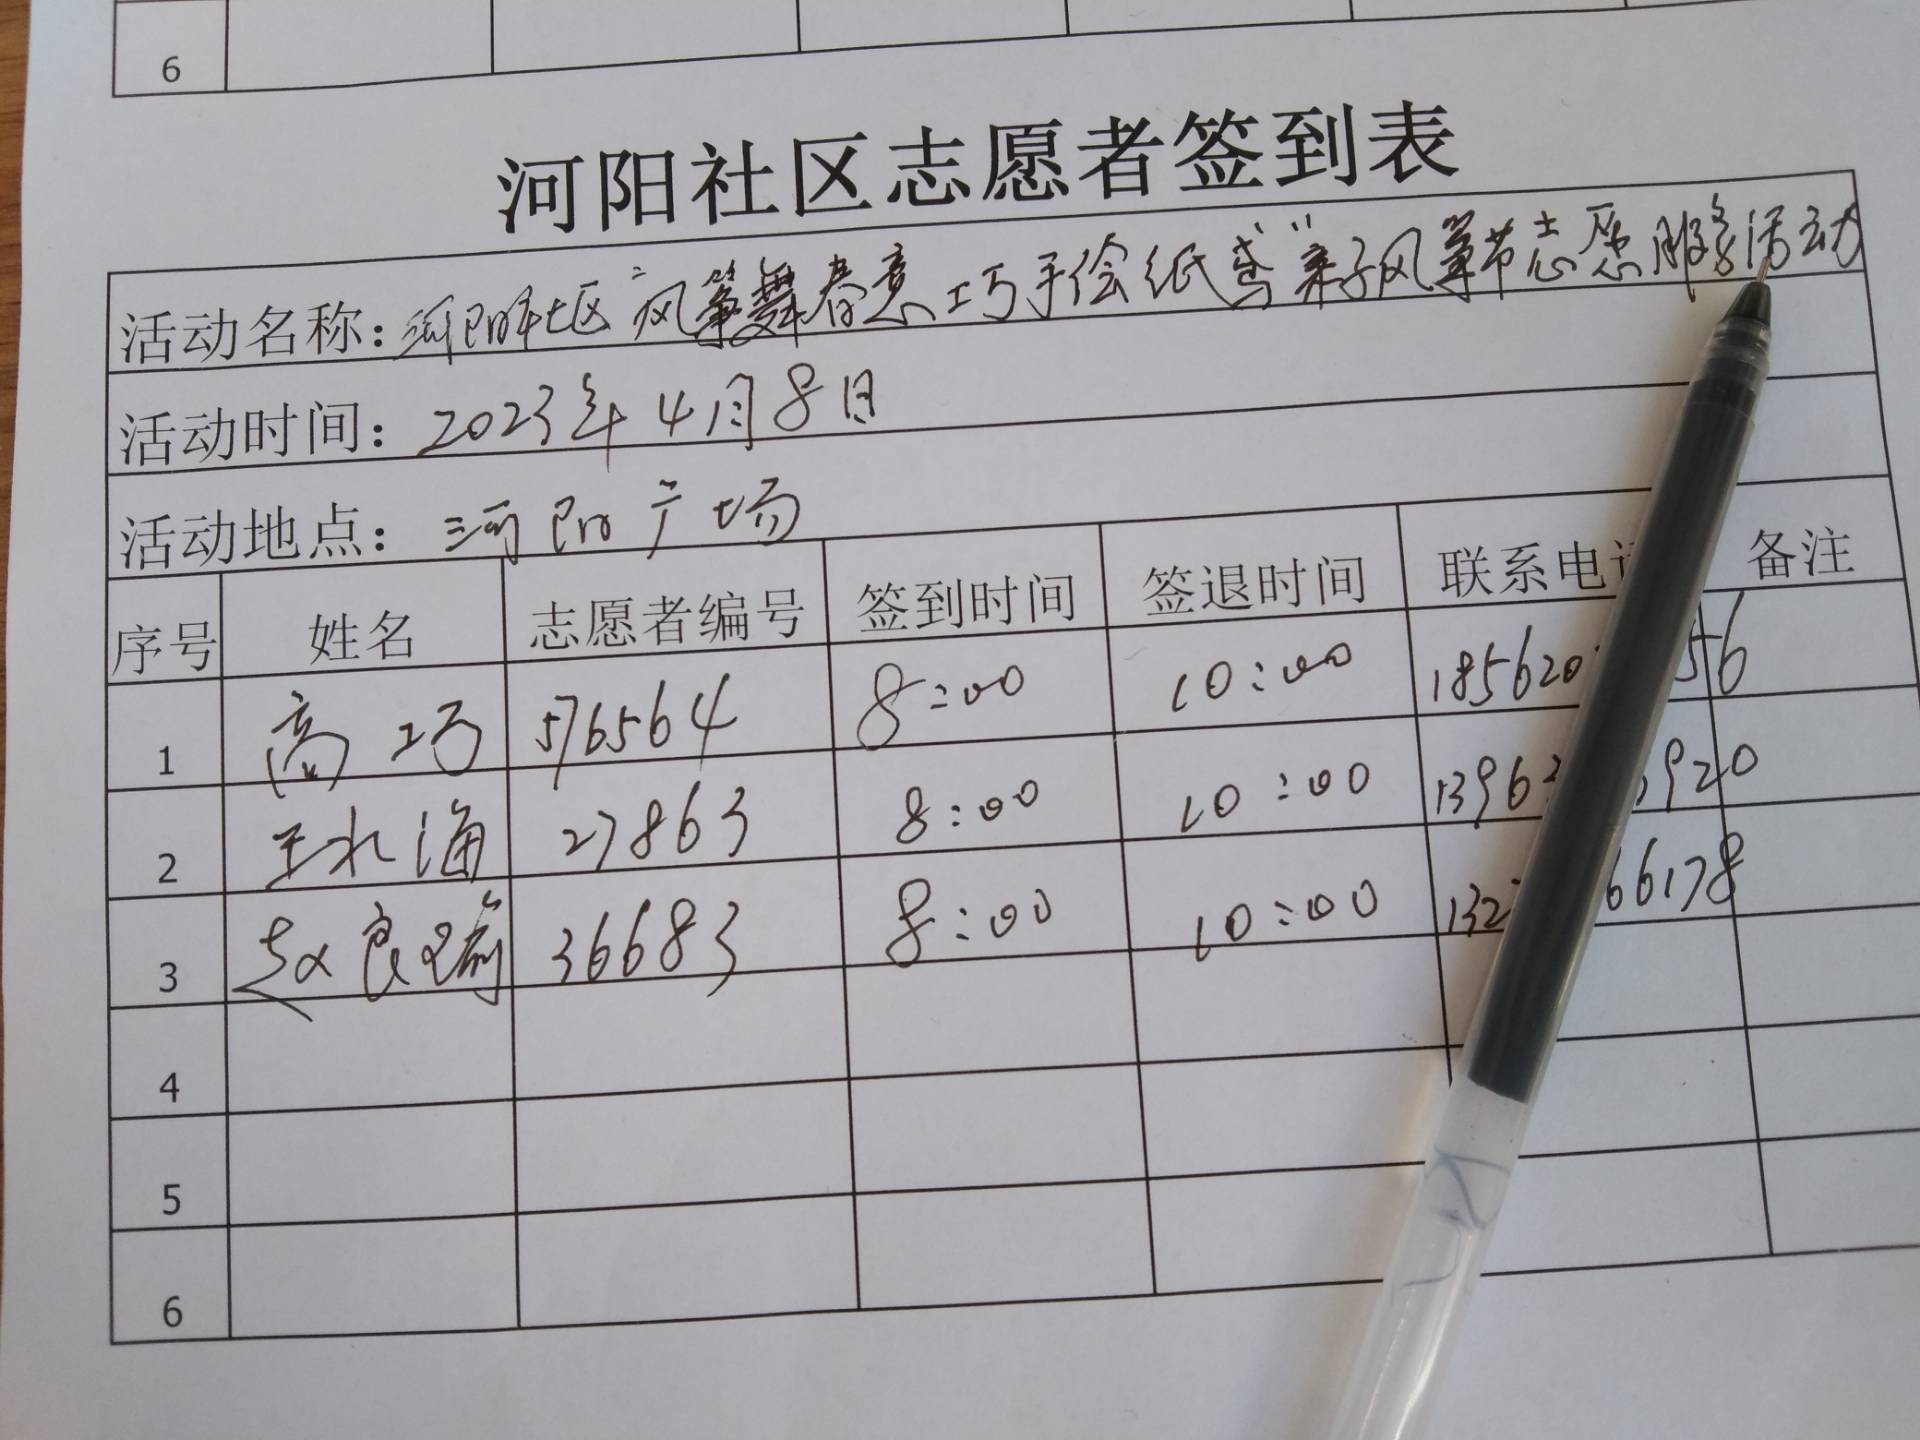 6
河阳社区志愿者签到表
活动名称：河阳社区"风筝舞春意 巧手绘纸鸢"亲子风筝节志愿服务活动
活动时间：2023年4月8日
活动地点：河阳广场
序号 姓名 志愿者编号 签到时间 签退时间 联系电 备注
1 高巧 576564 8:00 10:00 185620 56
2 王水海 27863 8:00 10:00 1396 3920
3 赵良瑜 36683 8:00 10:00 132 66178
4
5
6